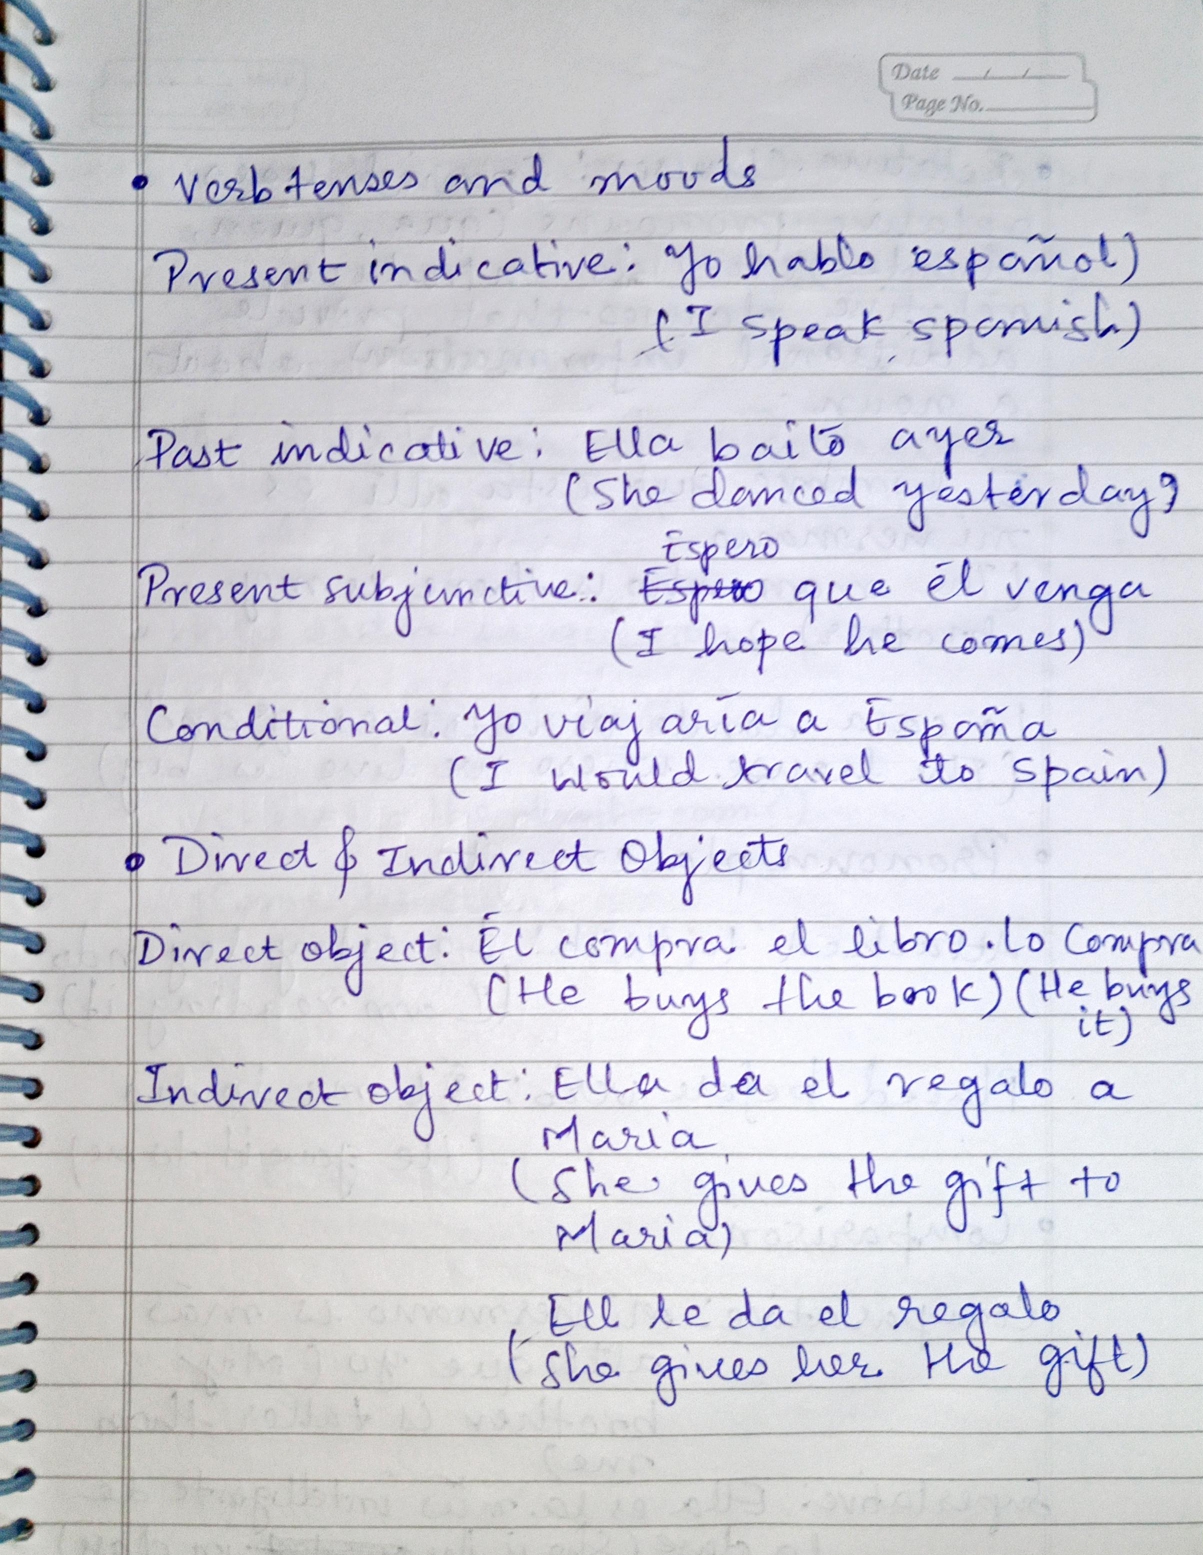 Date / /
Page No.
• Verb tenses and moods
Present indicative: Yo hablo español)
(I speak spanish)
Past indicative: Ella baitō ayer
(She danced yesterday)
Espero
Present subjunctive: Espero que ēl venga
(I hope he comes)
Conditional: Yo viajarīa a España
(I would travel to spain)
• Direct & Indirect Objects
Direct object: Él compra el libro. Lo Compra
(He buys the book) (He buys
it)
Indirect object: Ella da el regalo a
Maria
(She gives the gift to
Maria)
Ell le da el regalo
(She gives her the gift)